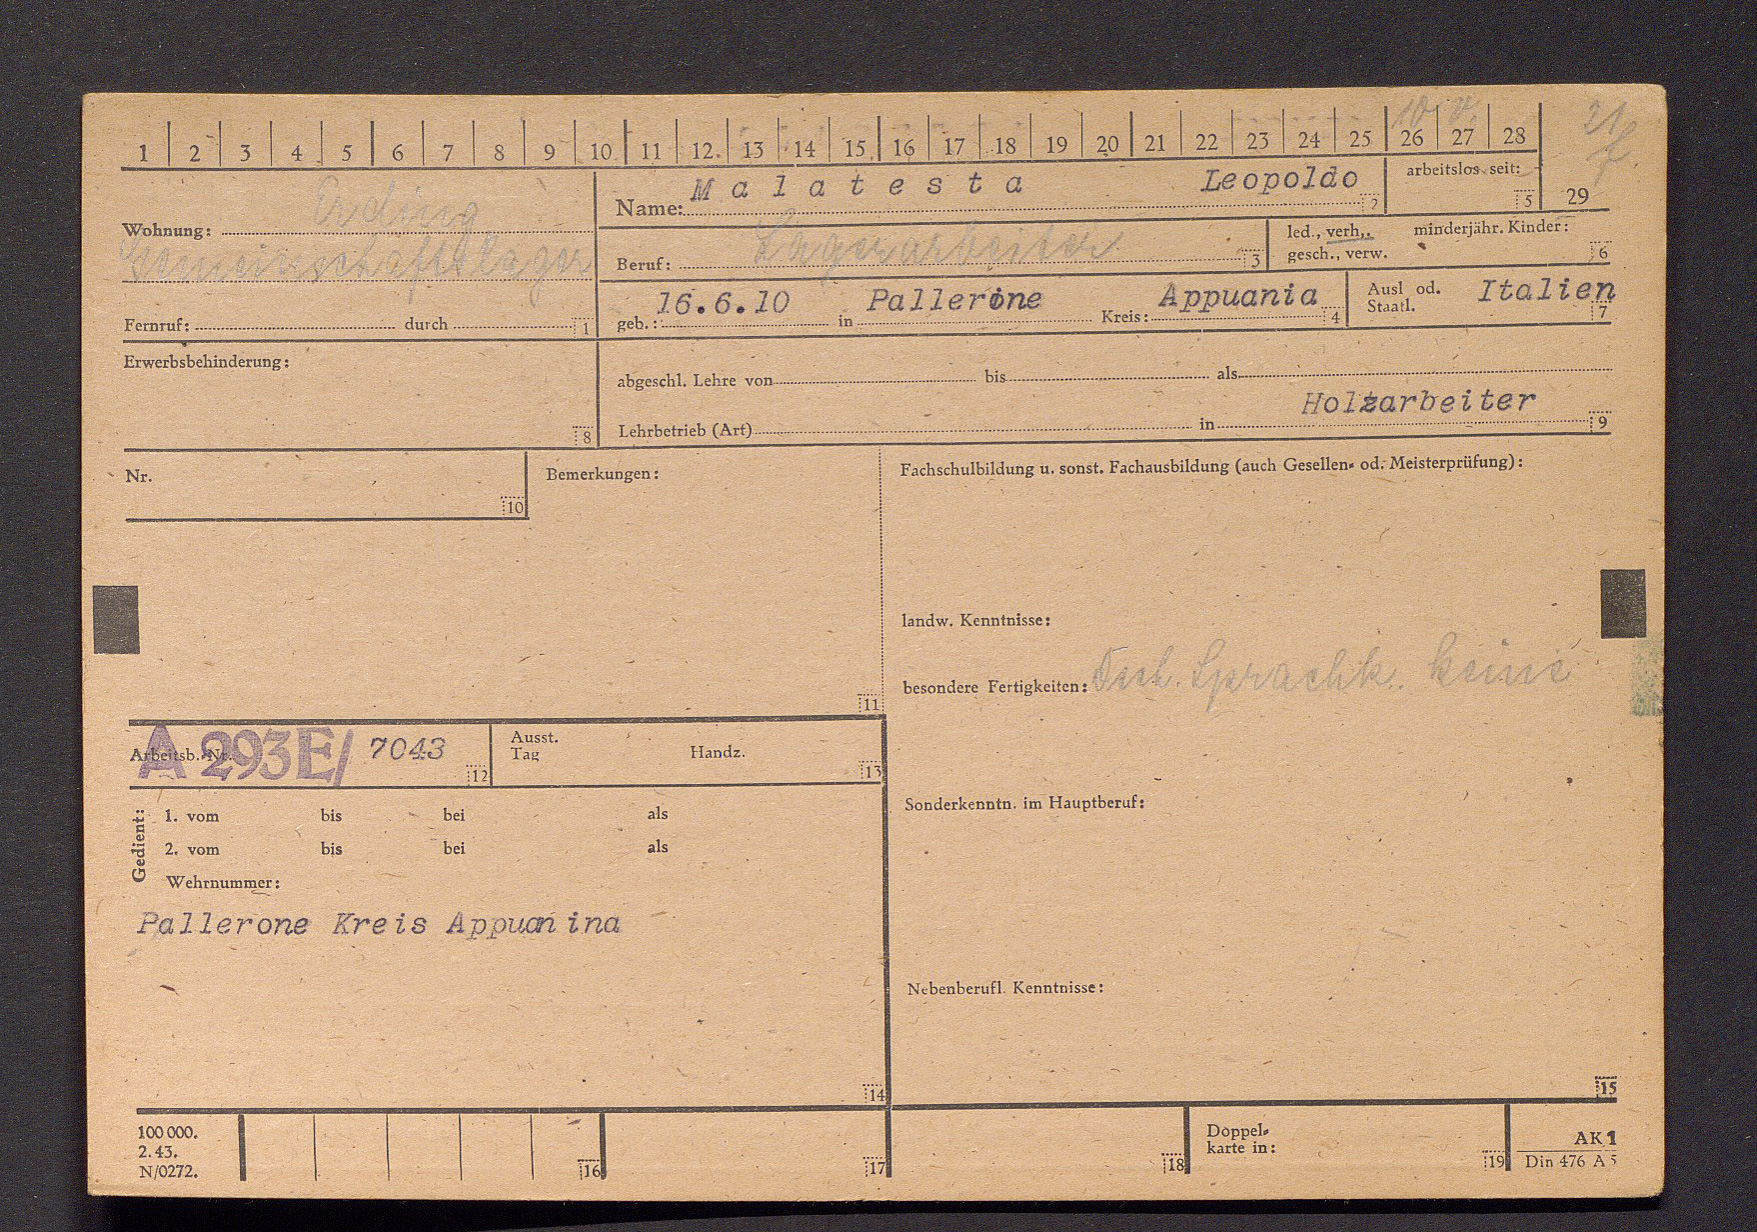 1 2 3 4 5 6 7 8 9 10 11 12 13 14 15 16 17 18 19 20 21 22 23 24 25 26 27 28
Name: Malatesta Leopoldo 2
arbeitslos seit: 5
29
Wohnung: Erding
Gemeinschaftslager
Fernruf: durch 1
Beruf: Lagerarbeiter 3
led., verh., minderjähr. Kinder:
gesch., verw. 6
geb.: 16.6.10 in Pallerone Kreis: Appuania 4
Ausl od. Italien
Staatl. 7
Erwerbsbehinderung:
8
abgeschl. Lehre von bis als
Holzarbeiter
Lehrbetrieb (Art) in 9
Nr.
10
Bemerkungen:
11
Fachschulbildung u. sonst. Fachausbildung (auch Gesellen- od. Meisterprüfung):
landw. Kenntnisse:
besondere Fertigkeiten: Sprachk. keine
Arbeitsb.-Nr. A 293E/ 7043 12
Ausst.
Tag Handz. 13
Gedient:
1. vom bis bei als
2. vom bis bei als
Wehrnummer:
Pallerone Kreis Appuanina
14
Sonderkenntn. im Hauptberuf:
Nebenberufl. Kenntnisse:
15
100 000.
2. 43.
N/0272.
16
17
18
Doppel-
karte in: 19
AK 1
Din 476 A 5